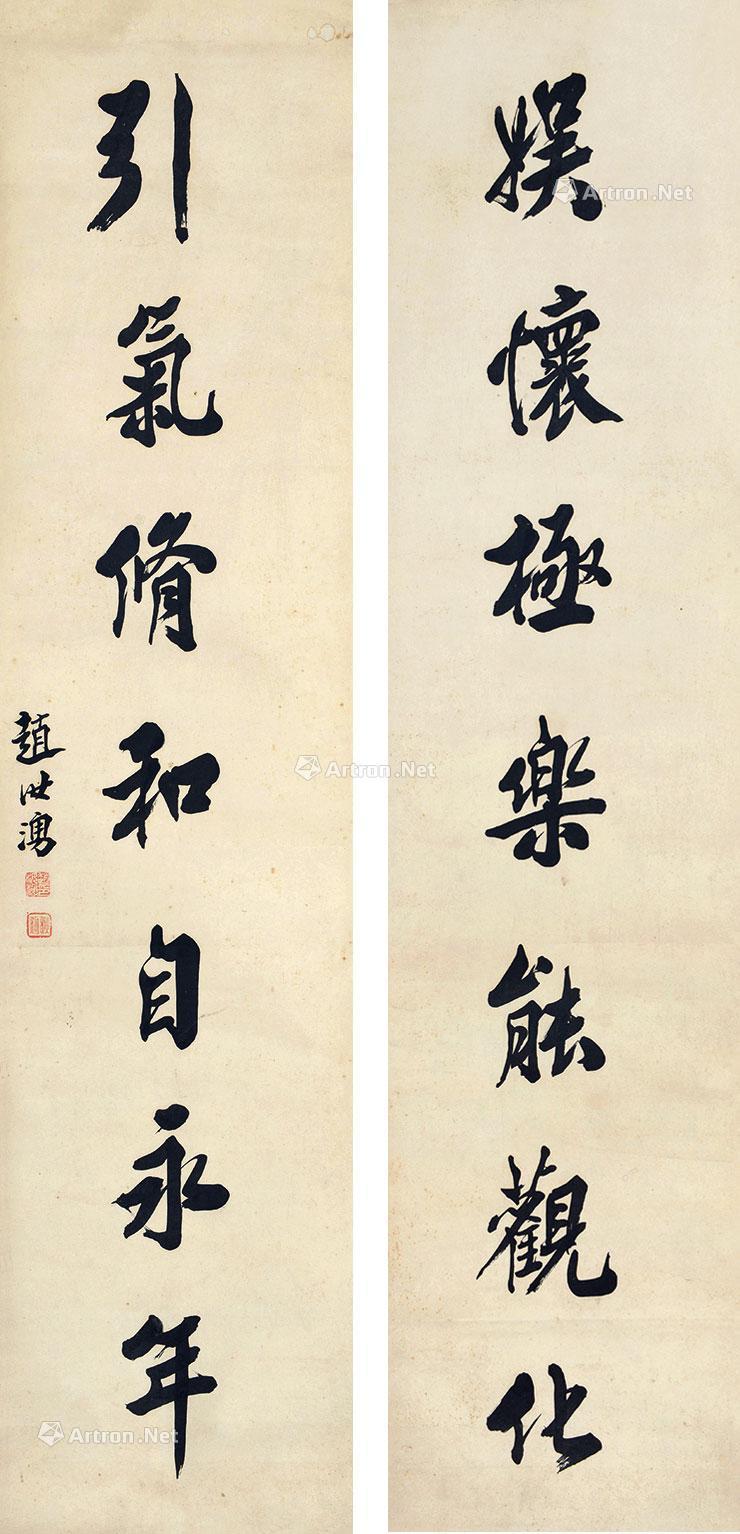 娛懷極樂能觀化
引氣脩和自永年
趙世湧
Artron.Net
Artron.Net
Artron.Net